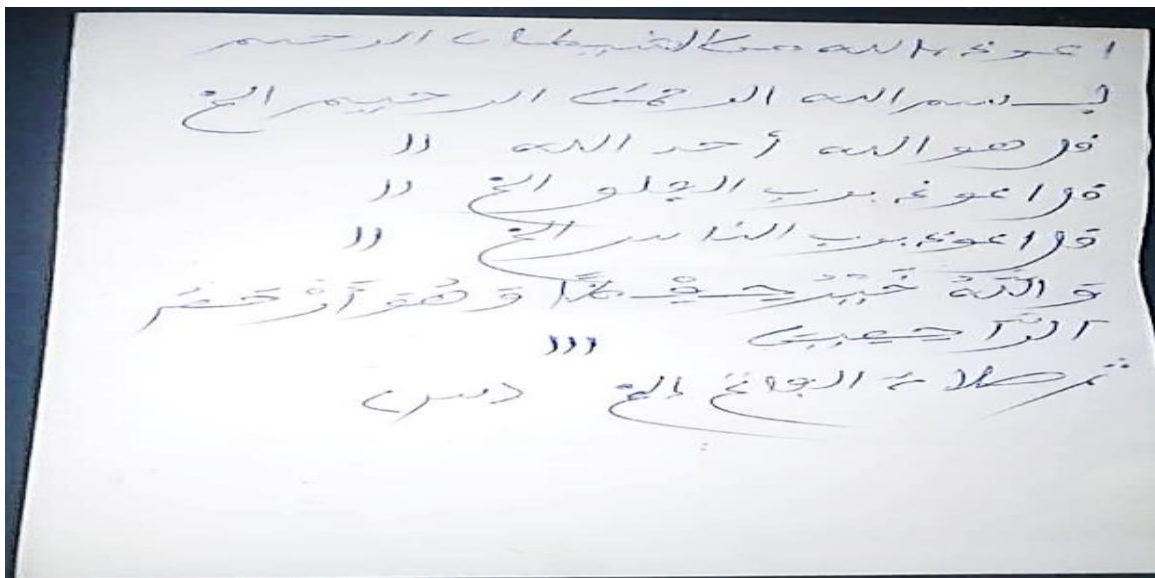 اعوذ بالله من الشيطان الرجيم
بسم الله الرحمن الرحيم الخ
قل هو الله أحد الله ))
قل اعوذ برب الفلق الخ ))
قل اعوذ برب الناس الخ ))
وَاللَّهُ خَيْرٌ حِفْظًا وَهُوَ أَرْحَمُ
الرَّاحِمِينَ )))
ثم صلاة الفاتح إلخ